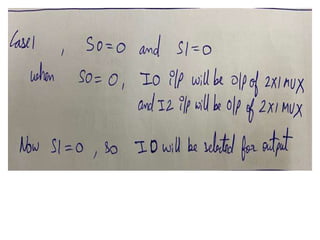 Case1 , S0=0 and S1=0
when S0=0, I0 i/p will be o/p of 2X1 MUX
and I2 i/p will be o/p of 2X1 MUX
Now S1=0, so I0 will be selected for output